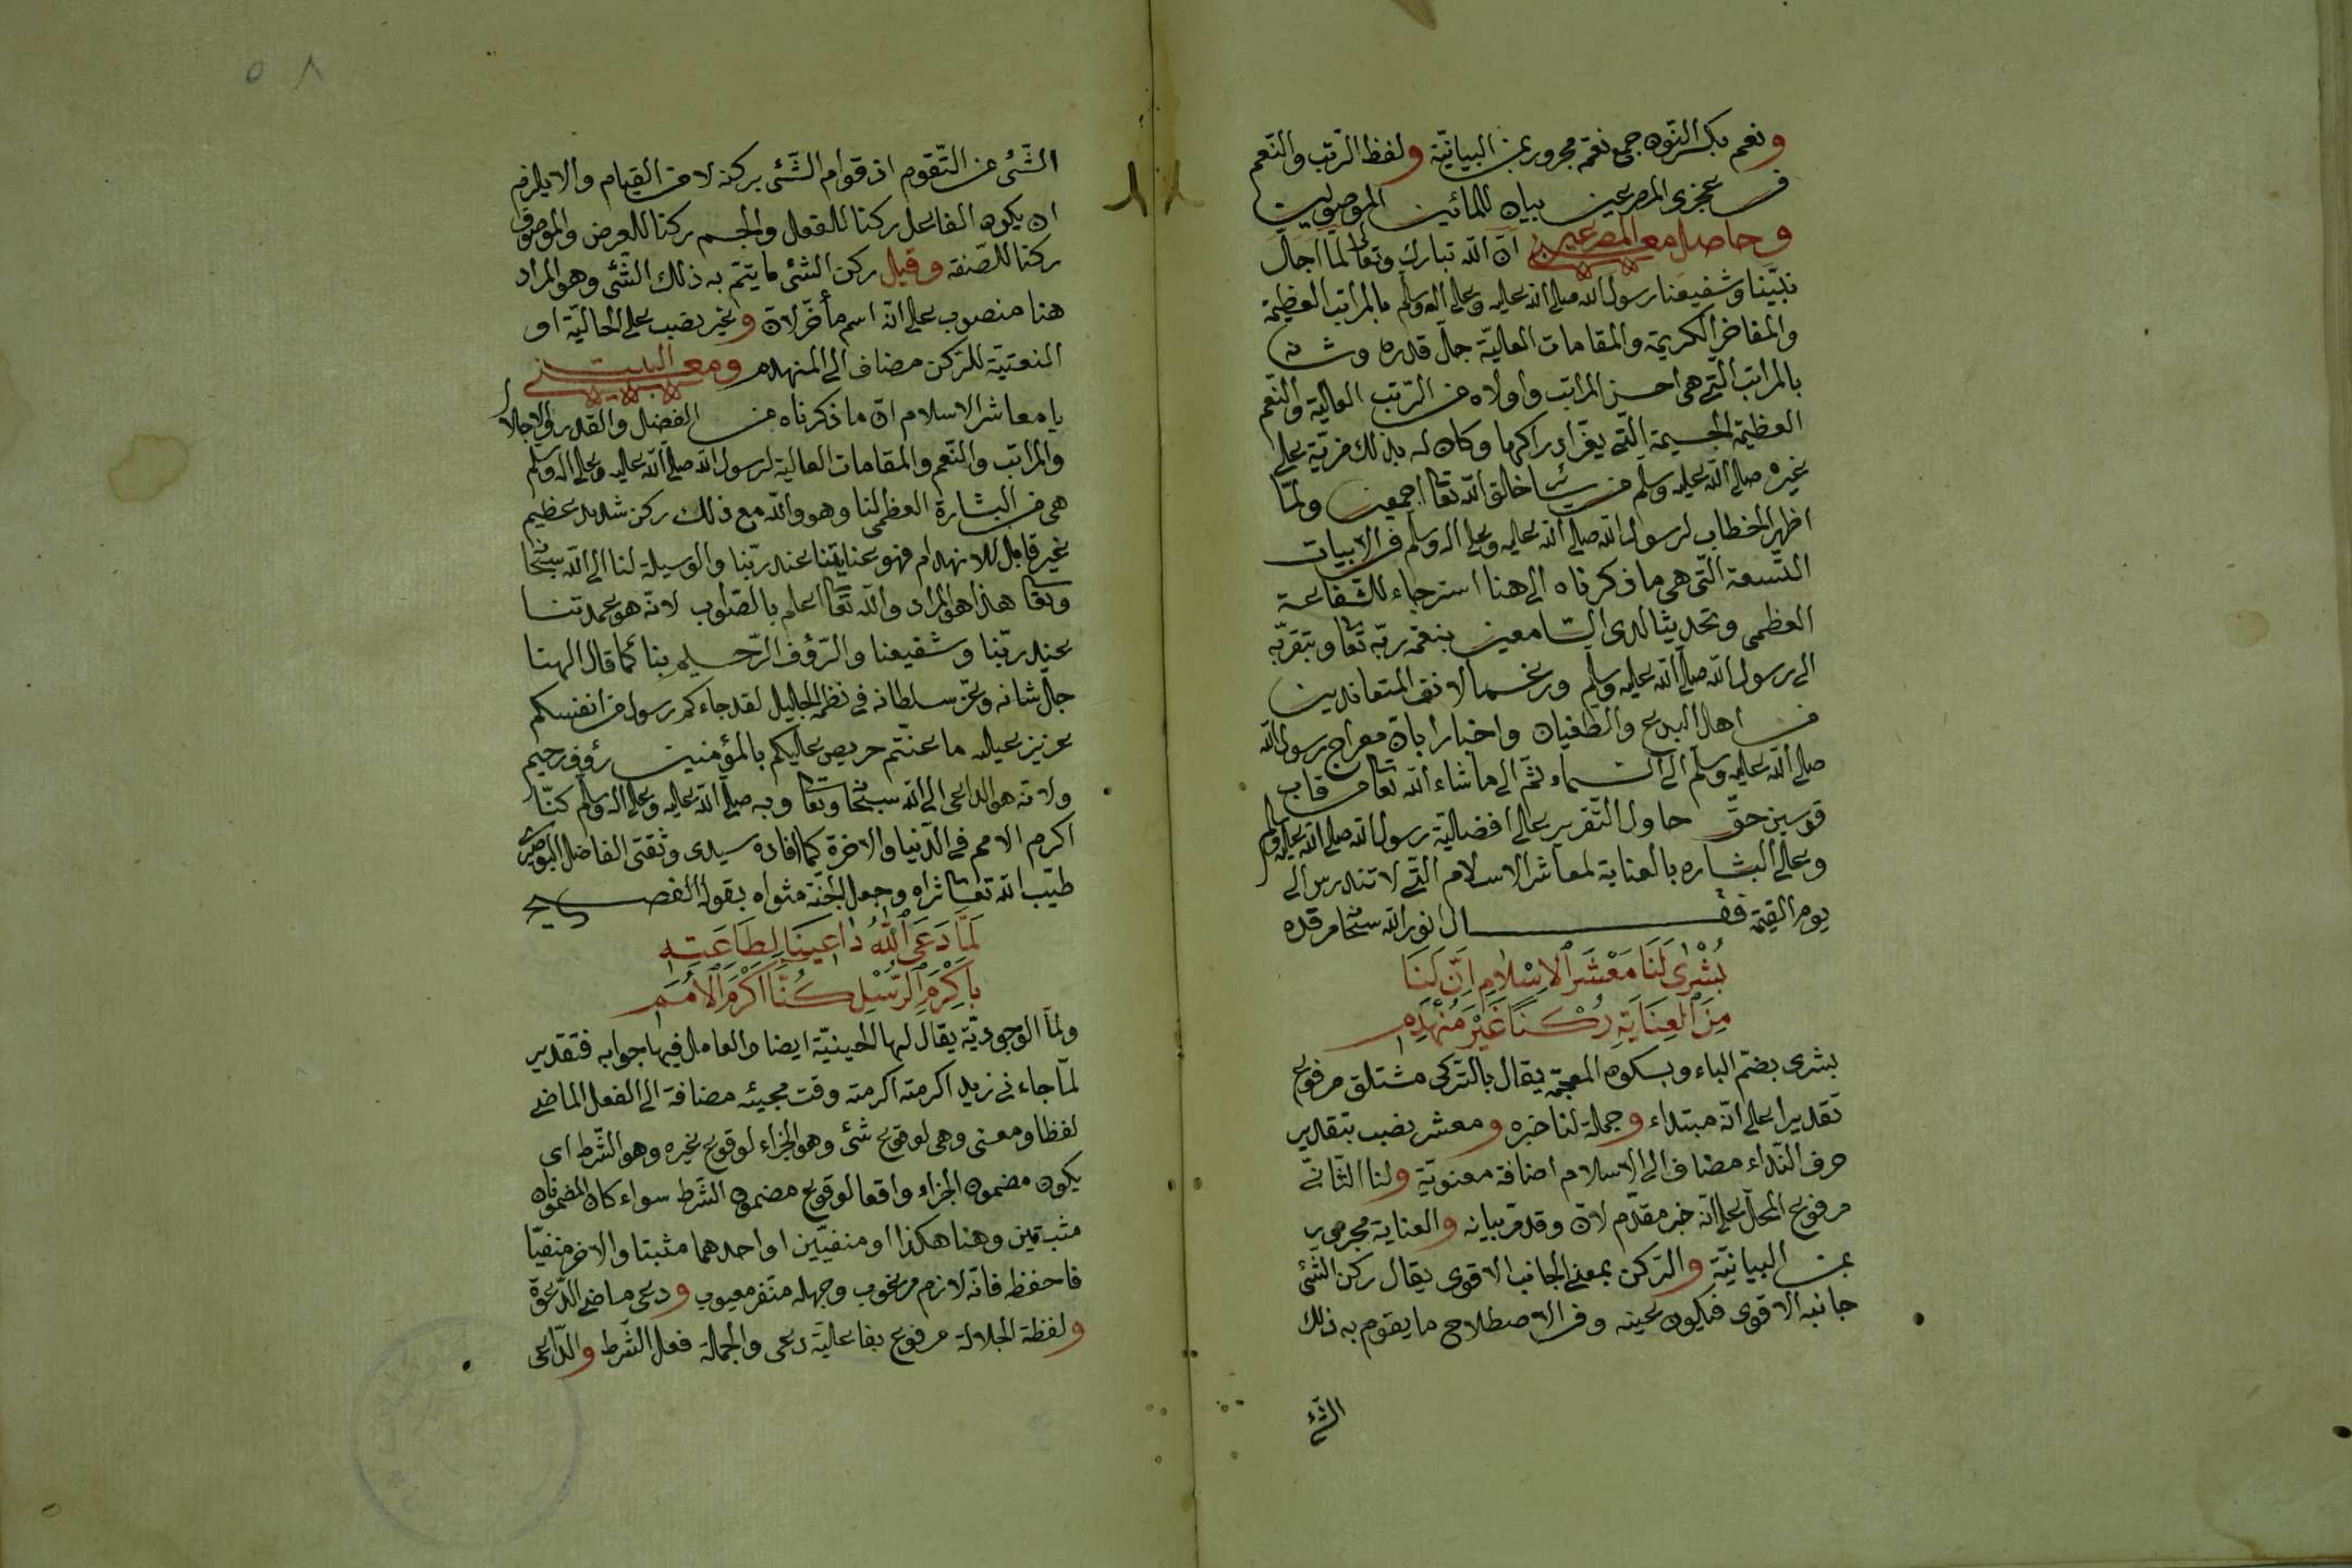 ونعم بكسر النون جمع نعمة مجرور بمن البيانية ولفظ الرتب والنعم
في عجزى المصرعين بيان للمائين الموصوليين
وحاصل مع المصرعين ان الله تبارك وتعا لما اجال
نبينا وشفيعنا رسول الله صلى الله عليه وعلى اله وسلم بالمراتب العظيمة
والمفاخر الكريمة والمقامات العالية جل قدره وشانه
بالمراتب التي هي احسن المراتب واولاه من الرتب العالية والنعم
العظيمة الجسيمة التي يعز ادراكها وكان له بذلك مزية على
غيره صلى الله عليه وسلم من سائر خلق الله تعا اجمعين ولما
اظهر الخطاب لرسول الله صلى الله عليه وعلى اله وسلم في الابيات
التسعة التي هي ما ذكرناه الى هنا استرجاء للشفاعة
العظمى وتحديثا لدى السامعين بنعمة ربه تعا وبتقربه
الى رسول الله صلى الله عليه وسلم ورغما لانف المتعاندين
من اهل البدع والطغيان واخبارا بان معراج رسول الله
صلى الله عليه وسلم الى السماء ثم الى ما شاء الله تعا من قاب
قوسين حق حاول التقرير على افضلية رسول الله صلى الله عليه وسلم
وعلى البشاره بالعناية لمعاشر الاسلام التي لا تندرس الى
يوم القيمة فقال نور الله سبحا مرقده
بُشْرٰى لَنَا مَعْشَرَ الْاِسْلَامِ اِنَّ لَنَا
مِنَ الْعِنَايَةِ رُكْنًا غَيْرَ مُنْهَدِمِ
بشرى بضم الباء وبسكون المعجمة يقال بالتركى مشتلق مرفوع
تقديرا على انه مبتداء وجملة لنا خبره ومعشر نصب بتقدير
حرف النداء مضاف الى الاسلام اضافة معنوية ولنا الثانى
مرفوع المحل على انه خبر مقدم لان وقد مر بيانه والعناية مجرور
بمن البيانية والركن بمعنى الجانب الاقوى يقال ركن الشئ
جانبه الاقوى فيكون عينه وفي الاصطلاح ما يقوم به ذلك
الشئ
٥٨
الشئ من التقوم اذ قوام الشئ بركنه لا من القيام والا يلزم
ان يكون الفاعل ركنا للفعل والجسم ركنا للعرض والموصوف
ركنا للصفة وقيل ركن الشئ ما يتم به ذلك الشئ وهو المراد
هنا منصوب على انه اسم مأخر لان وغير نصب على الحالية او
النعتية للركن مضاف الى المنهدم ومعنى البيت
يا معاشر الاسلام ان ما ذكرناه من الفضل والقدر والاجلال
والمراتب والنعم والمقامات العالية لرسول الله صلى الله عليه وعلى اله وسلم
هي من البشارة العظمى لنا وهو والله مع ذلك ركن شديد عظيم
غير قابل للانهدام فهو عنايتنا عند ربنا والوسيلة لنا الى الله سبحا
وتعا هذا هو المراد والله تعا اعلم بالصواب لانه هو عمدتنا
عند ربنا وشفيعنا والرؤف الرحيم بنا كما قال الهنا
جل شانه وعز سلطانه في نظمه الجليل لقد جاءكم رسول من انفسكم
عزيز عليه ما عنتم حريص عليكم بالمؤمنين رؤف رحيم
ولانه هو الداعى الى الله سبحا وتعا وبه صلى الله عليه وعلى اله وسلم كنا
اكرم الامم في الدنيا والاخرة كما افاده سيدى وثقتى الفاضل البوصيرى
طيب الله تعا ثراه وجعل الجنة مثواه بقوله الفصيح
لَمَّا دَعَى اللّٰهُ دَاعِينَا لِطَاعَتِهِ
بِاَكْرَمِ الرُّسْلِ كُنَّا اَكْرَمَ الْاُمَمِ
ولما الوجودية يقال لها الحينية ايضا والعامل فيها جوابه فتقدير
لما جاءنى زيد اكرمته اكرمته وقت مجيئه مضافة الى الفعل الماضى
لفظا ومعنى وهى لوقوع شئ وهو الجزاء لوقوع غيره وهو الشرط اى
يكون مضمون الجزاء واقعا لوقوع مضمون الشرط سواء كان المضمونان
مثبتين وهنا هكذا او منفيين او احدهما مثبتا والاخر منفيا
فاحفظه فانه لازم مرغوب وجهله منفر معيوب ودعى ماضى الدعوة
ولفظة الجلالة مرفوع بفاعلية دعى والجملة فعل الشرط والداعى